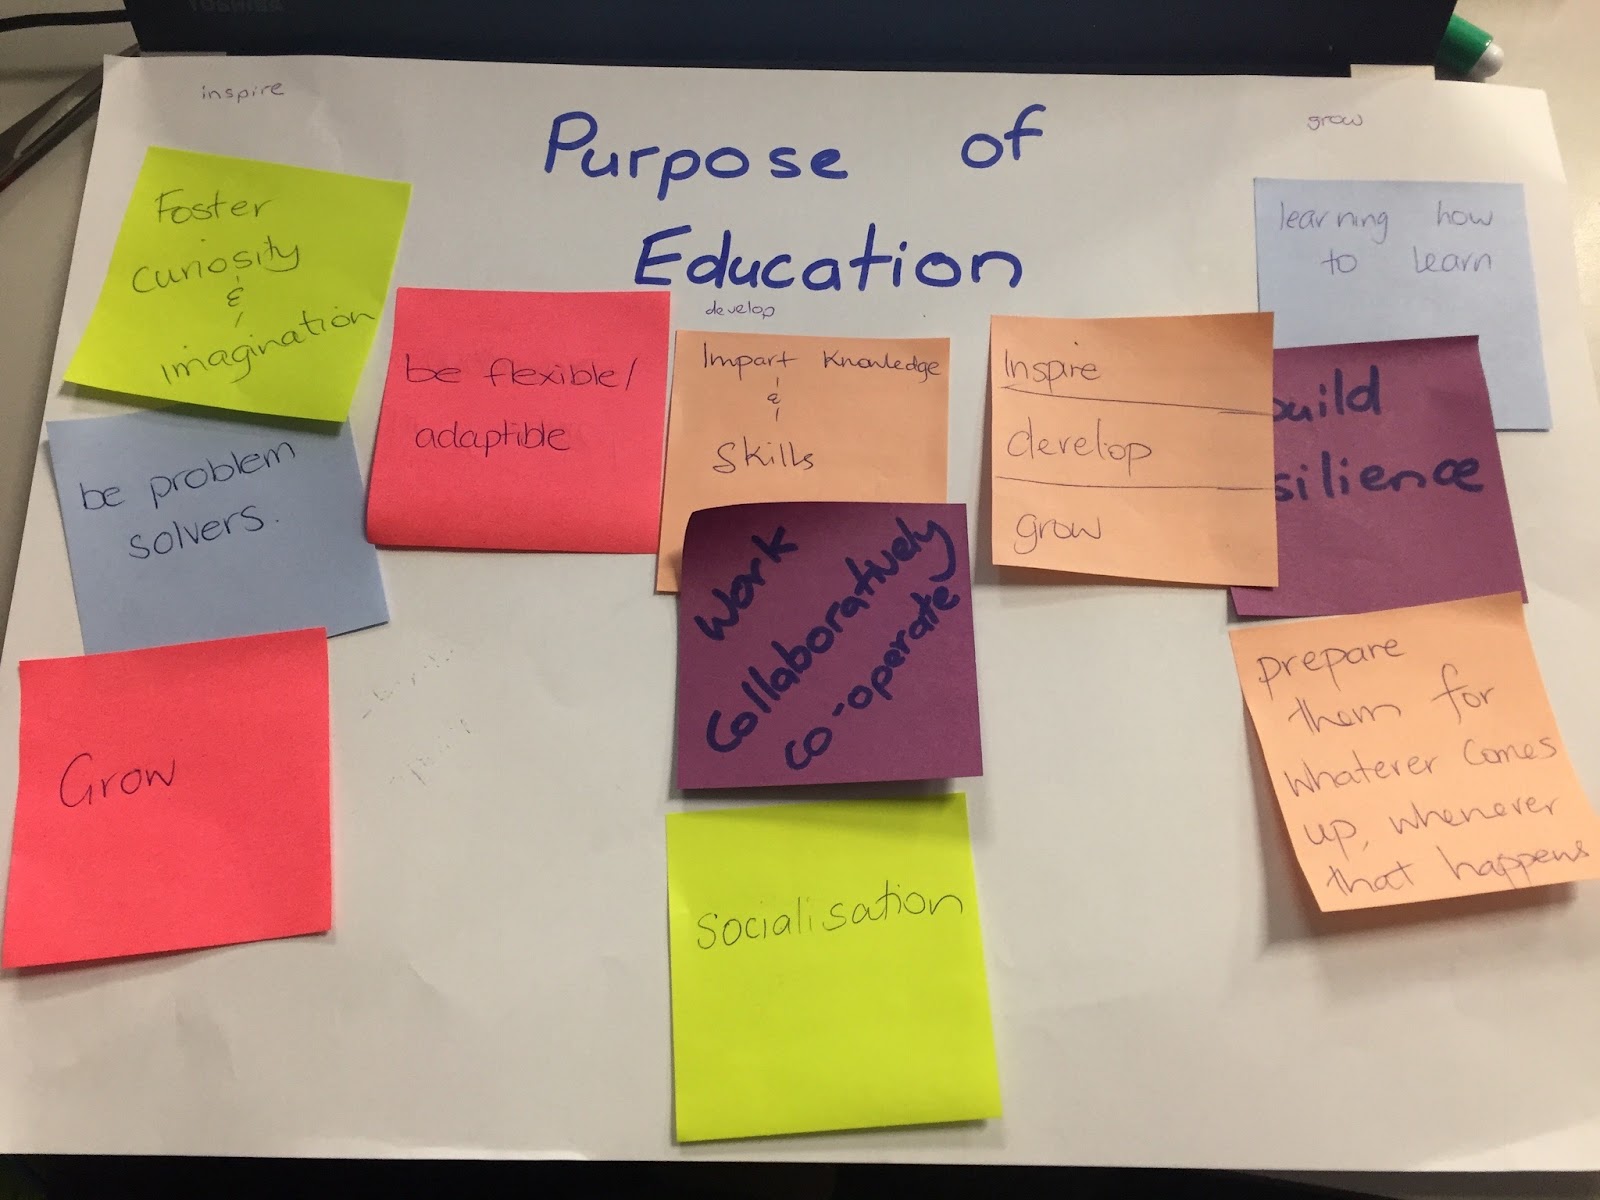 TOSHIBA
inspire
Purpose of
Education
grow
develop
Foster
curiosity
&
imagination
be problem
solvers.
Grow
be flexible/
adaptible
Impart Knowledge
&
Skills
Work
Collaboratively
co-operate
Socialisation
Inspire
develop
grow
learning how
to learn
build
silience
prepare
them for
whatever comes
up, whenever
that happens